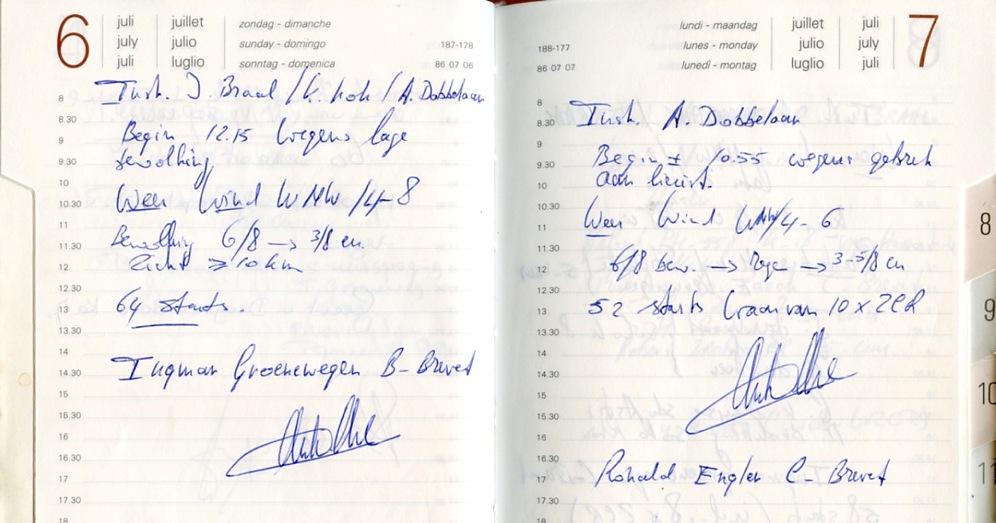 6
juli juillet zondag - dimanche
july julio sunday - domingo 187-178
juli luglio sonntag - domenica 86 07 06
8 Instr. J. Braal / K. Hok / A. Dobbelaan
8.30
9 Begin 12.15 wegens lage
9.30 bewolking
10
10.30 Weer Wind WNW /4-8
11 Bewolking 6/8 → 3/8 cu
11.30
12 zicht ≥ 10 km
12.30
13 64 starts.
13.30
14 Ingmar Groenewegen B-Brevet
14.30
15
15.30
16
16.30
17
17.30
18
lundi - maandag juillet juli 7
188-177 lunes - monday julio july
86 07 07 lunedì - montag luglio juli
8 Instr. A. Dobbelaan
8.30
9 Begin ± 10.55 wegens gebrek
9.30 aan lierist.
10
10.30 Weer Wind WNW/4-6
11
11.30
12 6/8 bew. → regen → 3-5/8 cu
12.30
13 52 starts waarvan 10 x
13.30
14
14.30
15
15.30
16
16.30 Ronald Engler C-Brevet
17
17.30
18
8
9
10
11